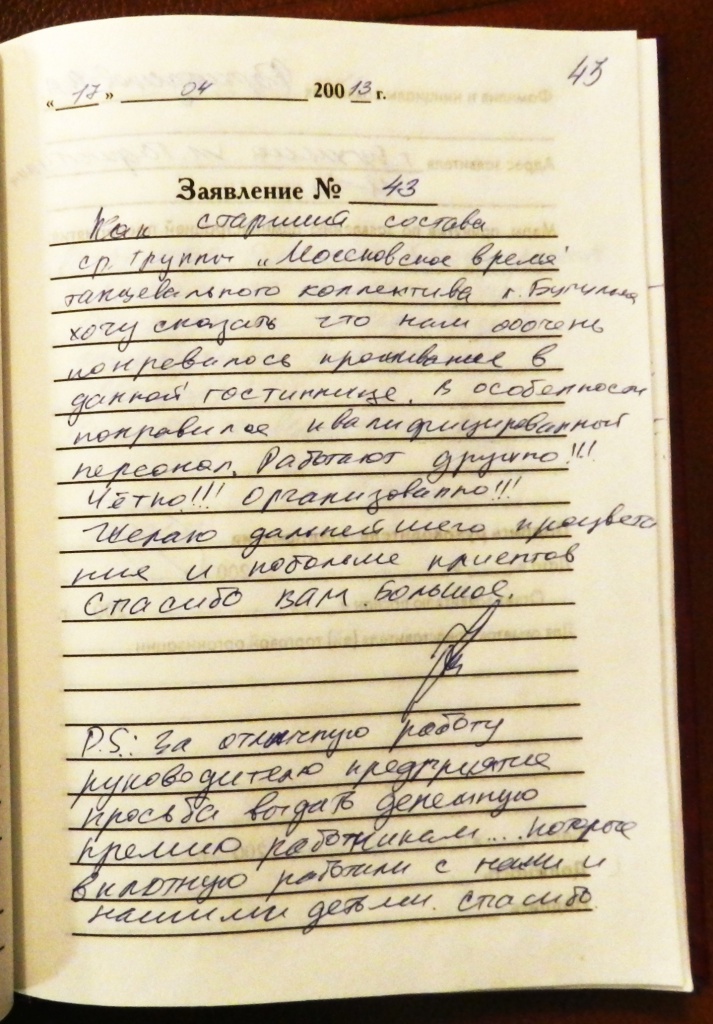 43
« 17 » 04 200 13 г.
Заявление № 43
Как старший состава
ср. группы „Московское время"
танцевального коллектива г. Бугульма
хочу сказать что нам ооочень
понревилось проживание в
данной гостиннице. В особенности
понравился квалифицированный
персонал. Работают дружно!!!
Чётко!!! Организованно!!!
Желаю дальнейшего процвета
ние и поболеше клиентов
Спасибо вам. Большое.
P.S: За отличную работу
руководителю предприятие
просьба выдать денежную
премию работникам... которые
вплотную работали с нами и
нашими детьми. Спасибо.